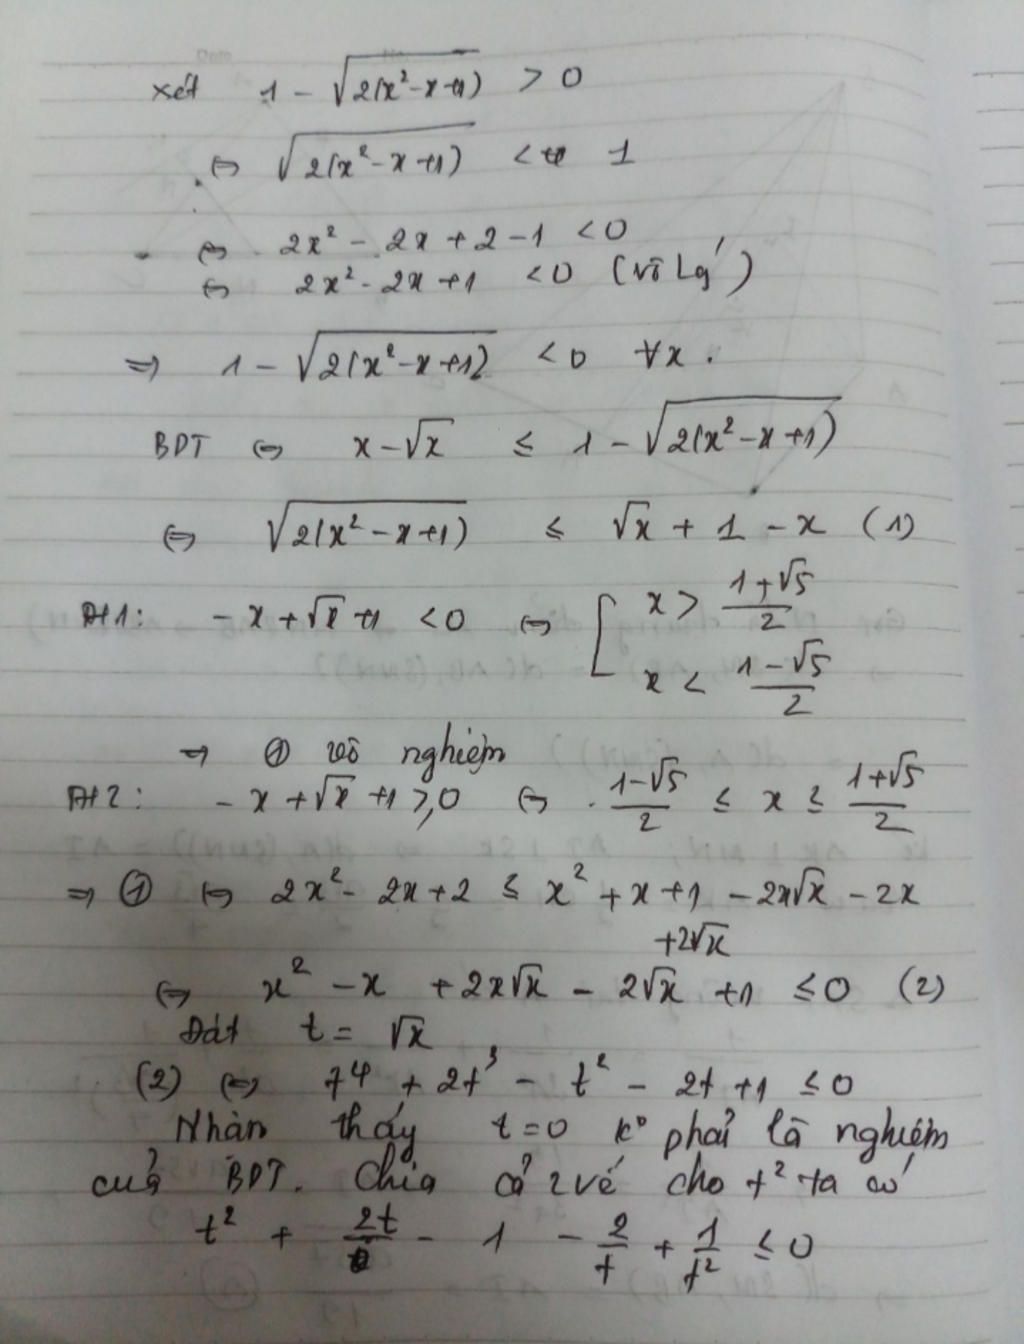 xét 1 - √(2(x² - x + 1)) > 0
⇔ √(2(x² - x + 1)) < 1
⇔ 2x² - 2x + 2 - 1 < 0
⇔ 2x² - 2x + 1 < 0 (vô lý)
⇒ 1 - √(2(x² - x + 1)) < 0 ∀x.
BPT ⇔ x - √x ≤ 1 - √(2(x² - x + 1))
⇔ √(2(x² - x + 1)) ≤ √x + 1 - x (1)
TH1: -x + √x + 1 < 0 ⇔ [ x > (1+√5)/2
x < (1-√5)/2
⇒ ① vô nghiệm
TH2: -x + √x + 1 ≥ 0 ⇔ (1-√5)/2 ≤ x ≤ (1+√5)/2
⇒ ① ⇔ 2x² - 2x + 2 ≤ x² + x + 1 - 2x√x - 2x
+2√x
⇔ x² - x + 2x√x - 2√x + 1 ≤ 0 (2)
Đặt t = √x
(2) ⇔ t⁴ + 2t³ - t² - 2t + 1 ≤ 0
Nhận thấy t = 0 k° phải là nghiệm
của BPT. Chia cả 2 vế cho t² ta có
t² + 2t - 1 - 2/t + 1/t² ≤ 0